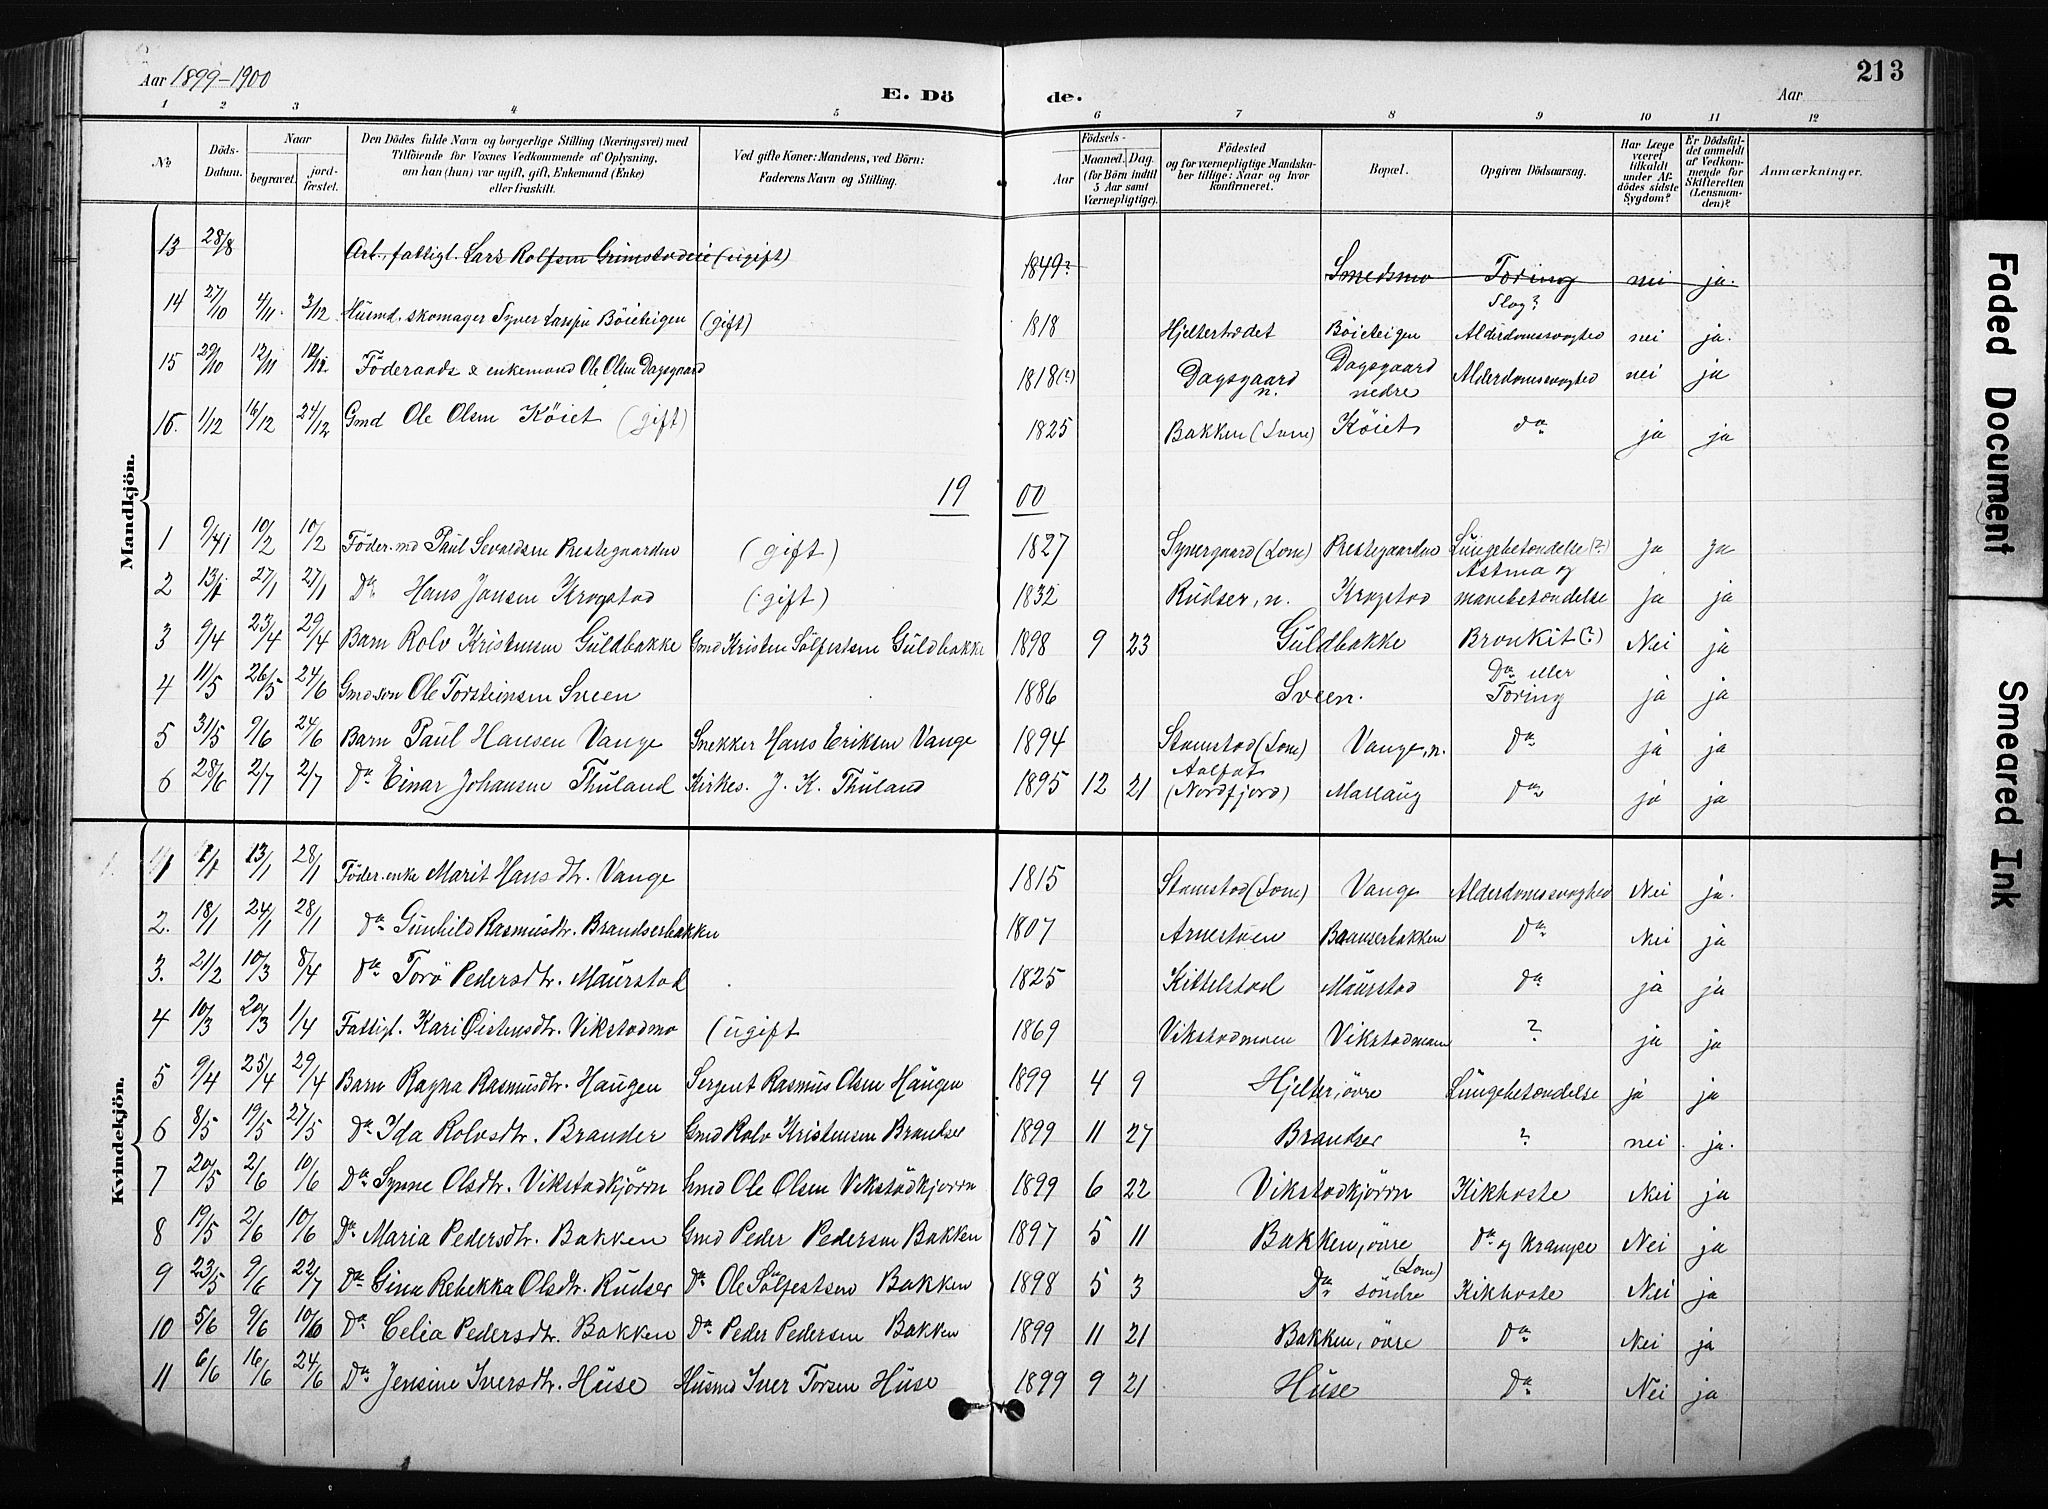 Aar 1899-1900
E. Döde.
Aar
213
1 2 3 4 5 6 7 8 9 10 11 12
No
Döds-Datum.
Naar
begravet.
jord-fæstet.
Den Dödes fulde Navn og borgerlige Stilling (Næringsvei) med
Tilföiende for Voxnes Vedkommende af Oplysning,
om han (hun) var ugift, gift, Enkemand (Enke)
eller fraskilt.
Ved gifte Koner: Mandens, ved Börn:
Faderens Navn og Stilling.
Födsels-
Aar
Maaned. Dag.
(for Börn indtil
5 Aar samt
Værnepligtige).
Födested
og for værnepligtige Mandska-
ber tillige: Naar og hvor
konfirmeret.
Bopæl.
Opgiven Dödsaarsag.
Har Læge
været
tilkaldt
under Af-
dödes sidste
Sygdom?
Er Dödsfal-
det anmeldt
af Vedkom-
mende for
Skifteretten
(Lensman-
den)?
Anmærkninger.
Mandkjön.
13 28/8 Arb., fattigl. Lars Rolfsen Grimstadeie (ugift) 1849? Smedsmo Tæring nei ja.
14 27/10 4/11 3/12 Husmd. skomager Syver Larssen Böieteigen (gift) 1818 Hjeltestædet Böieteigen Slag? Alderdomssvaghed nei ja.
15 29/10 12/11 12/12 Föderaads & enkemand Ole Olsen Dagsgaard 1818(?) Dagsgaard n. Dagsgaard nedre Alderdomssvaghed nei ja
16. 1/12 16/12 24/12 Gmd Ole Olsen Köiet (gift) 1825 Bakken (Lom) Köiet do ja ja
1900
1 9/1 10/2 10/2 Föder.md Paul Sevaldsen Prestegaarden (gift) 1827 Synergaard (Lom) Prestegaarden Lungebetændelse (?) ja ja
2 13/1 27/1 27/1 Do Hans Jansen Krogstad (gift) 1832 Rudser, n. Krogstad Astma og mavebetændelse ja ja
3 9/4 23/4 29/4 Barn Rolv Kristensen Guldbakke Gmd Kristen Sölfestsen Guldbakke 1898 9 23 Guldbakke Bronkit (?) Nei ja
4 11/5 26/5 24/6 Gmdsøn Ole Torsteinsen Sveen 1886 Sveen. Do eller Tæring ja ja
5 31/5 9/6 24/6 Barn Paul Hansen Vange Snekker Hans Eriksen Vange 1894 Stamstad (Lom) Vange, n. Do ja ja
6 28/6 2/7 2/7 Do Einar Johansen Thuland Kirkes. J. K. Thuland 1895 12 21 Aalfot (Nordfjord) Marlaug Do ja ja
Kvindekjön.
1 13/1 28/1 Föder.enke Marit Hansdtr. Vange 1815 Stamstad (Lom) Vange Alderdomssvaghed Nei ja.
2. 18/1 24/1 28/1 Do Gunhild Rasmusdtr. Brandserbakken 1807 Arnestuen Brandserbakken Do Nei ja
3. 21/2 10/3 8/4 Do Torö Pedersdtr. Maurstad 1825 Kittelstad Maurstad Do ja ja
4 10/3 20/3 1/4 Fattigl. Kari Öistensdtr. Vikstadmo (ugift 1869 Vikstadmoen Vikstadmoen ? ja ja
5 9/4 25/4 29/4 Barn Ragna Rasmusdtr. Haugen Sergent Rasmus Olsen Haugen 1899 4 9 Hjelter, övre Lungebetændelse ja ja
6 8/5 19/5 27/5 Do Ida Rolvsdtr. Brandser Gmd Rolv Kristensen Brandser 1899 11 27 Brandser ? nei ja.
7 20/5 2/6 10/6 Do Synne Olsdtr. Vikstadkjörrn Gmd Ole Olsen Vikstadkjörrn 1899 6 22 Vikstadkjörrn Kikhoste Nei ja
8 19/5 2/6 10/6 Do Maria Pedersdtr. Bakken Gmd Peder Pedersen Bakken 1897 5 11 Bakken, övre Do og krampe Nei ja
9 23/5 9/6 22/7 Do Gina Rebekka Olsdtr. Rudser Do Ole Sölfestsen Bakken 1898 5 3 Do söndre (Lom) Kikhoste Nei ja
10 5/6 9/6 10/6 Do Celia Pedersdtr. Bakken Do Peder Pedersen Bakken 1899 11 21 Bakken, övre Do Nei ja
11 6/6 16/6 24/6 Do Jensine Iversdtr. Huse Husmd Iver Torsen Huse 1899 9 21 Huse Do Nei ja
Faded Document
Smeared Ink